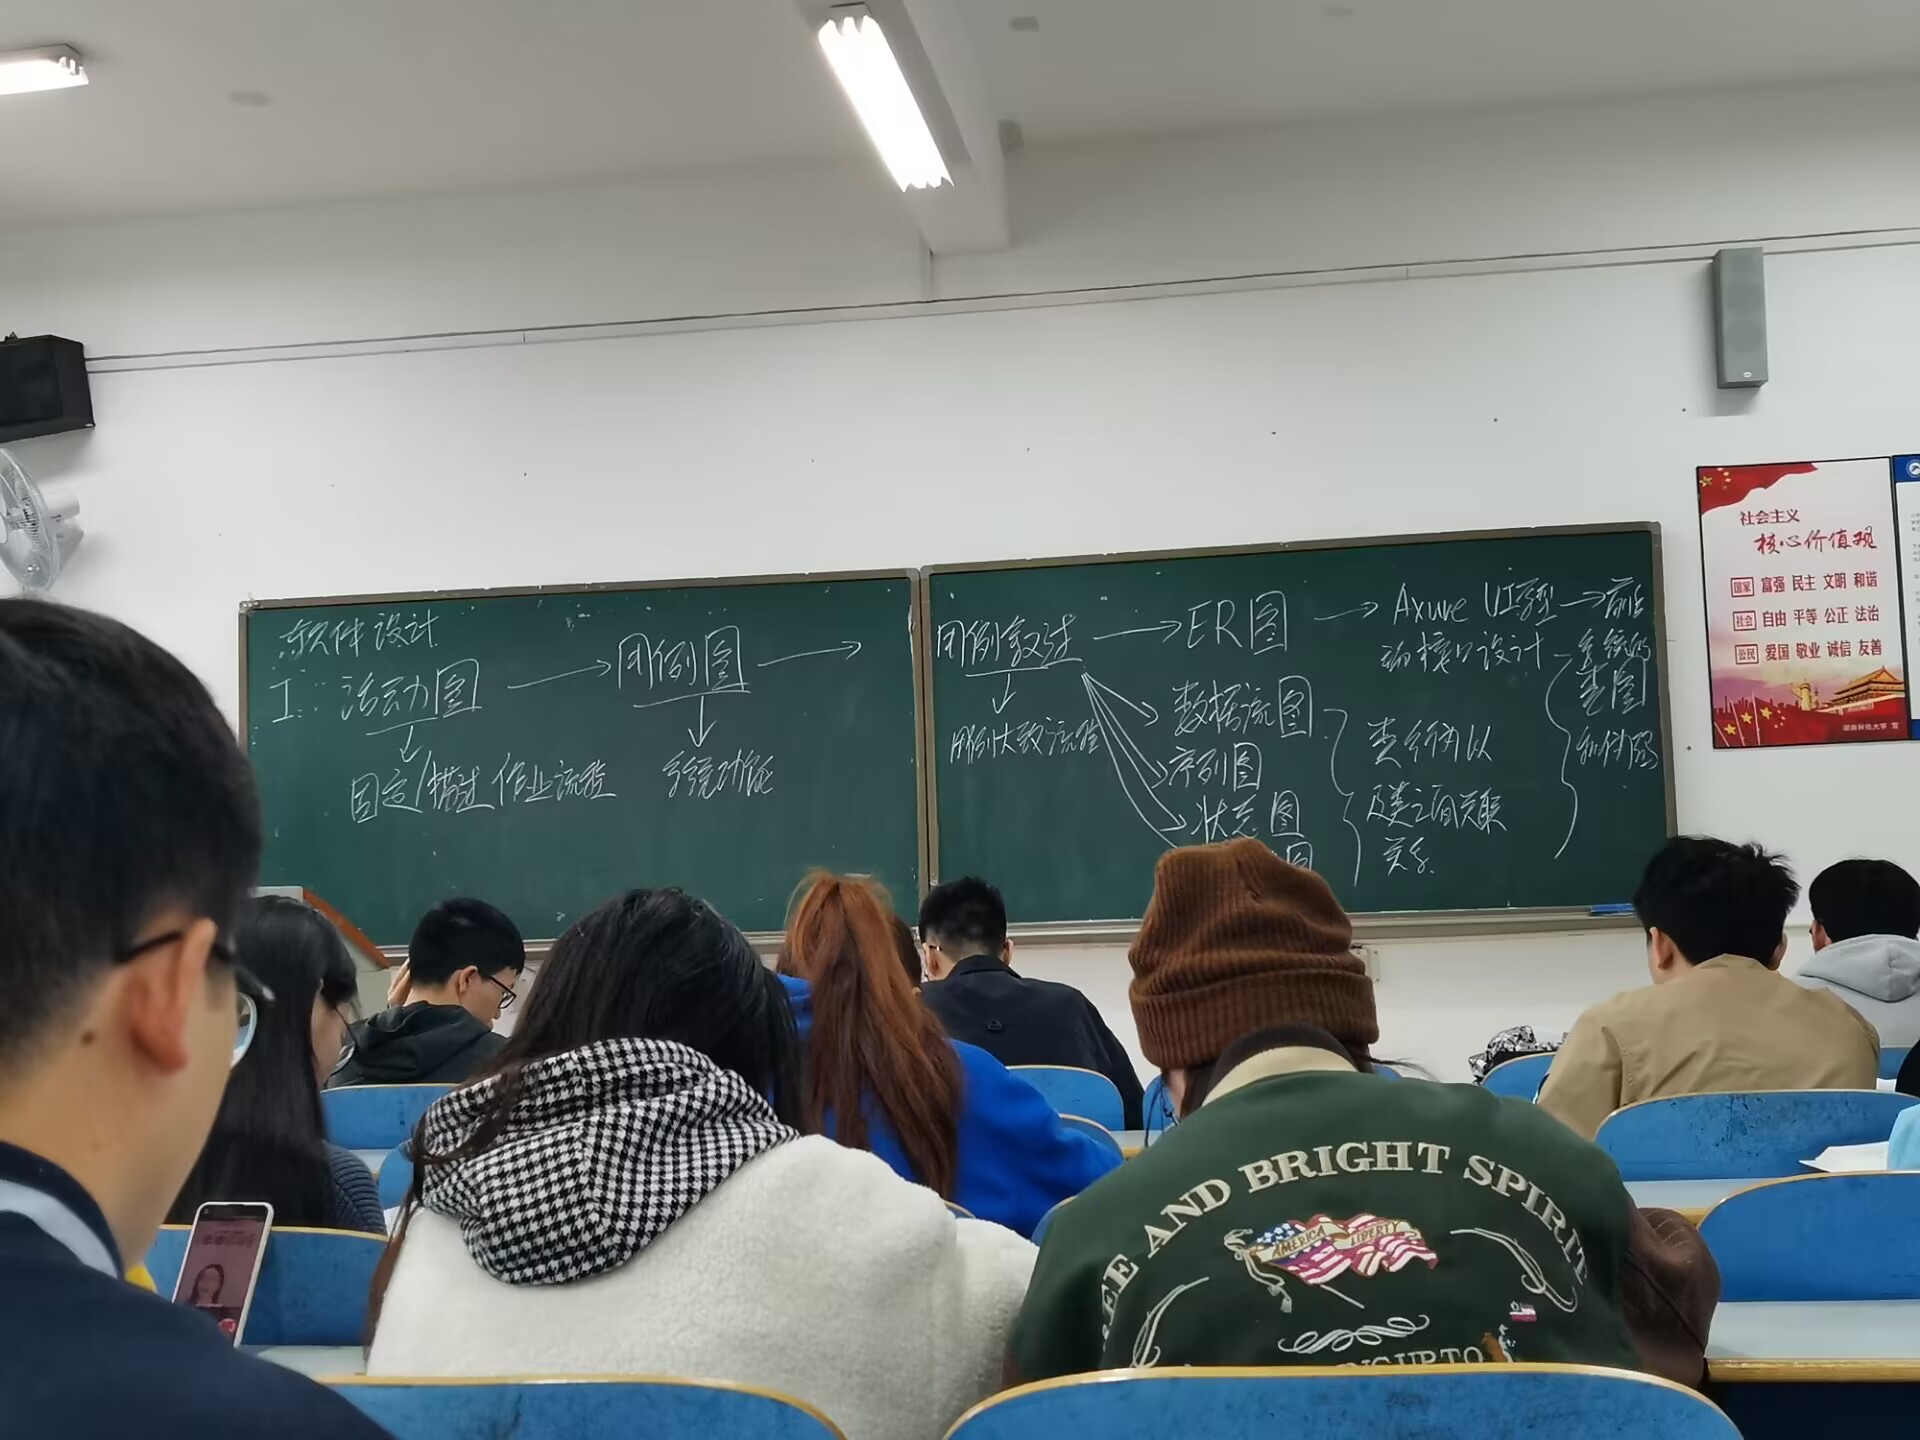 软件设计
工: 活动图 → 用例图 →
固定/描述 作业流程
系统功能
用例叙述 → ER图 → Axure UI原型 → 前后
动 接口设计 - 系统的
类图
数据流图
用例大致流程
序列图
状态图
图
类行为以
及类之间关联
关系
社会主义
核心价值观
国家 富强 民主 文明 和谐
社会 自由 平等 公正 法治
公民 爱国 敬业 诚信 友善
湖南科技大学 宣
EE AND BRIGHT SPIRIT
AMERICA LIBERTY
NG UP TO